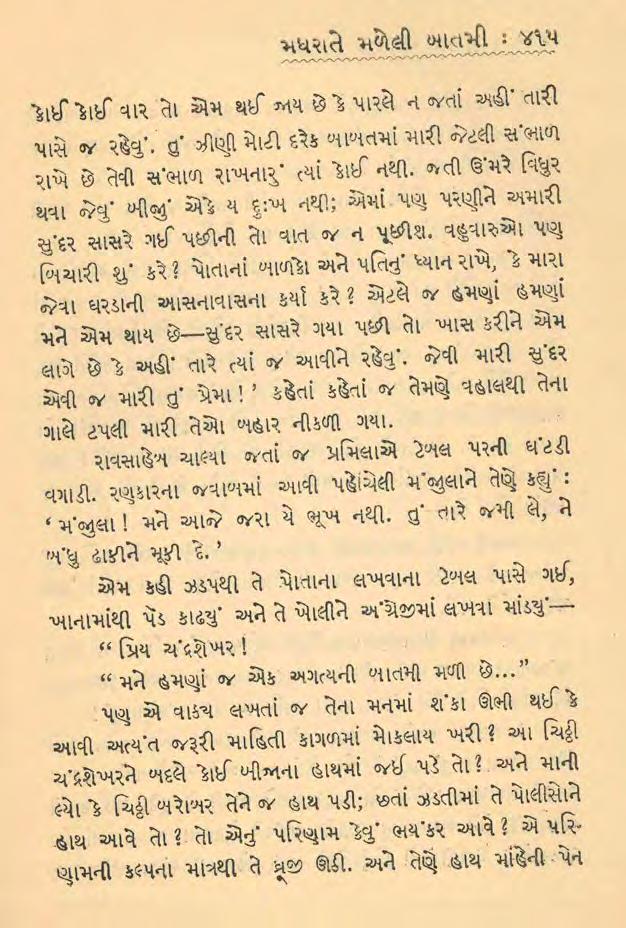 મધરાતે મળેલી બાતમી : ૪૧૫
કોઈ કોઈ વાર તો એમ થઈ જાય છે કે પારલે ન જતાં અહીં તારી
પાસે જ રહેવું. તું ઝીણી મોટી દરેક બાબતમાં મારી જેટલી સંભાળ
રાખે છે તેવી સંભાળ રાખનારું ત્યાં કોઈ નથી. જતી ઉંમરે વિધુર
થવા જેવું બીજું એકે ય દુઃખ નથી; એમાં પણ પરણીને અમારી
સુંદર સાસરે ગઈ પછીની તો વાત જ ન પૂછીશ. વહુવારુઓ પણ
બિચારી શું કરે? પોતાનાં બાળકો અને પતિનું ધ્યાન રાખે, કે મારા
જેવા ઘરડાની આસનાવાસના કર્યા કરે? એટલે જ હમણાં હમણાં
મને એમ થાય છે—સુંદર સાસરે ગયા પછી તો ખાસ કરીને એમ
લાગે છે કે અહીં તારે ત્યાં જ આવીને રહેવું. જેવી મારી સુંદર
એવી જ મારી તું પ્રેમા!’ કહેતાં કહેતાં જ તેમણે વહાલથી તેના
ગાલે ટપલી મારી તેઓ બહાર નીકળી ગયા.
રાવસાહેબ ચાલ્યા જતાં જ પ્રમિલાએ ટેબલ પરની ઘંટડી
વગાડી. રણકારના જવાબમાં આવી પહોંચેલી મંજુલાને તેણે કહ્યું :
‘મંજુલા! મને આજે જરા યે ભૂખ નથી. તું તારે જમી લે, ને
બંધુ ઢાકીને મૂકી દે.’
એમ કહી ઝડપથી તે પોતાના લખવાના ટેબલ પાસે ગઈ,
ખાનામાંથી પેંડ કાઢયું અને તે ખોલીને અંગ્રેજીમાં લખવા માંડયું—
“પ્રિય ચંદ્રશેખર!
“મને હમણાં જ એક અગત્યની બાતમી મળી છે...”
પણ એ વાકય લખતાં જ તેના મનમાં શંકા ઊભી થઈ કે
આવી અત્યંત જરૂરી માહિતી કાગળમાં મોકલાય ખરી? આ ચિઠ્ઠી
ચંદ્રશેખરને બદલે કોઈ બીજાના હાથમાં જઈ પડે તો? અને માની
લ્યો કે ચિઠ્ઠી બરોબર તેને જ હાથ પડી; છતાં ઝડતીમાં તે પોલીસોને
હાથ આવે તો? તો એનું પરિણામ કેવું ભયંકર આવે? એ પરિ-
ણામની કલ્પના માત્રથી તે ધ્રૂજી ઊઠી. અને તેણે હાથ માંહેની પેન